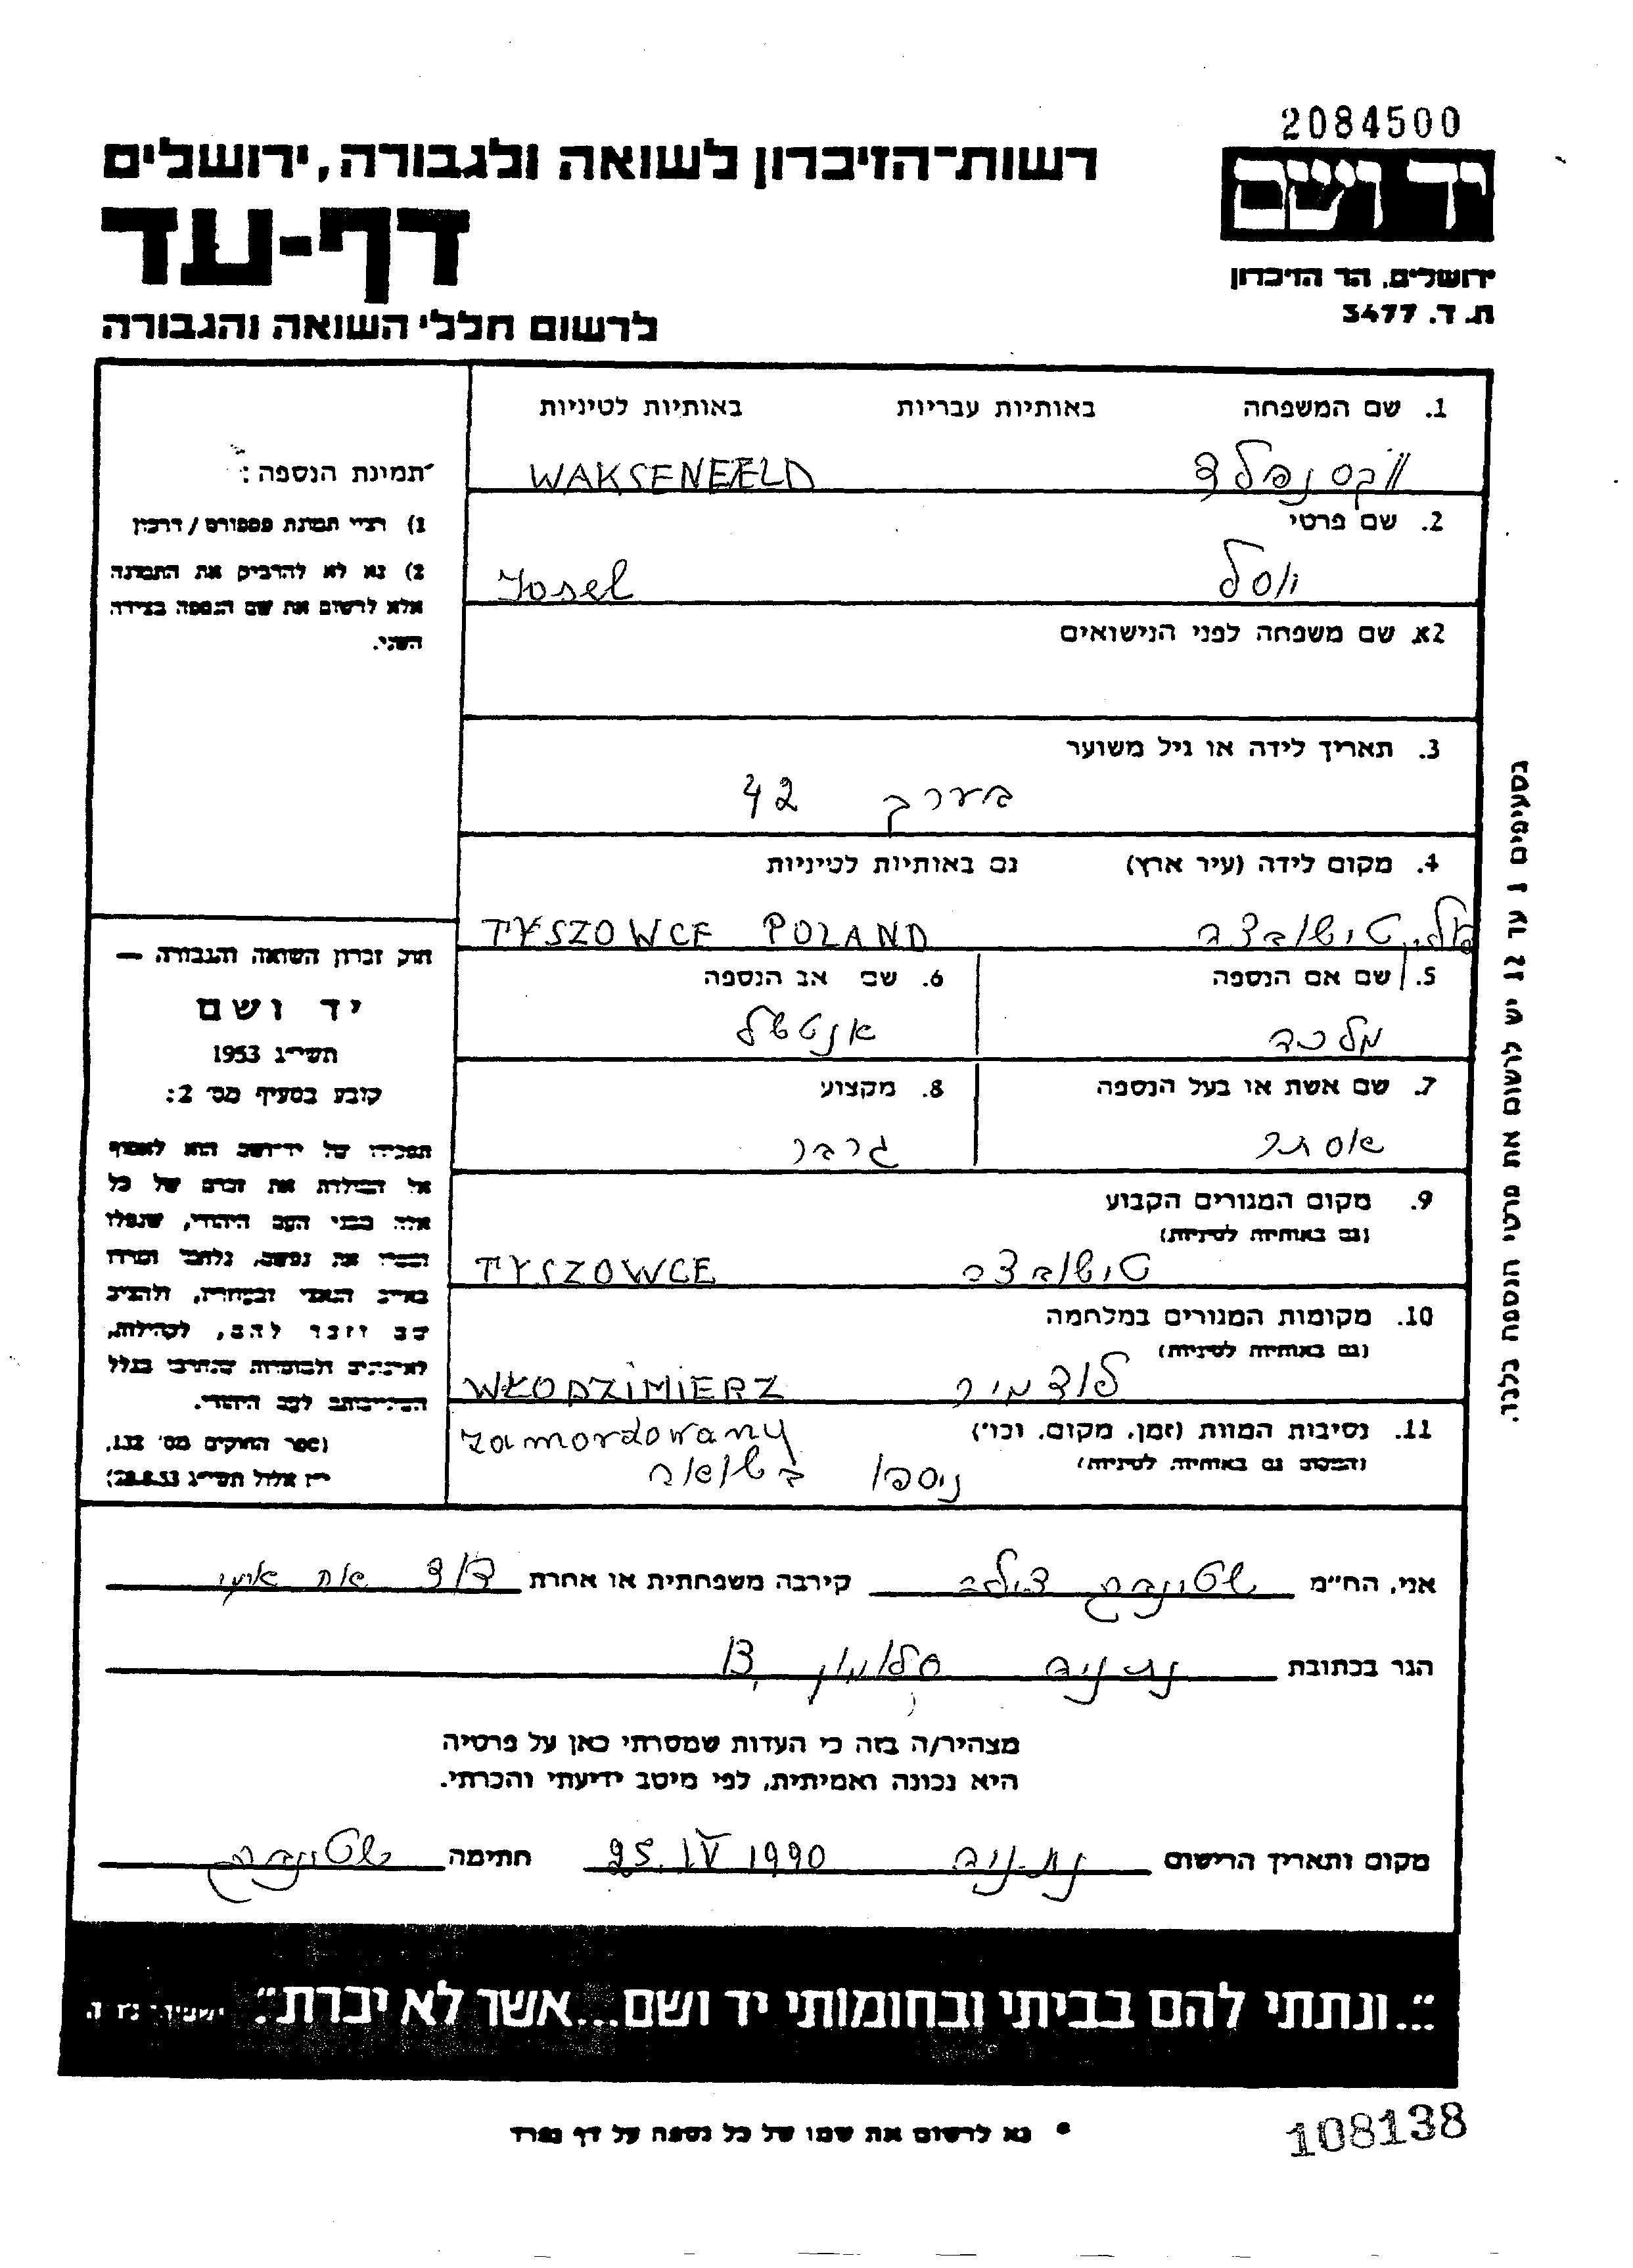 2084500
יד ושם
ירושלים, הר הזיכרון
ת. ד. 3477
רשות־הזיכרון לשואה ולגבורה, ירושלים
דף-עד
לרשום חללי השואה והגבורה
1. שם המשפחה באותיות עבריות באותיות לטיניות
WAKSENFELD
2. שם פרטי
יוסל Josel
2א. שם משפחה לפני הנישואים
3. תאריך לידה או גיל משוער
בערך 42
4. מקום לידה (עיר ארץ) גם באותיות לטיניות
טישובצה TYSZOWCE POLAND
5. שם אם הנספה 6. שם אב הנספה
מלכה אנטשל
7. שם אשת או בעל הנספה 8. מקצוע
אסתר
9. מקום המגורים הקבוע
(גם באותיות לטיניות)
טישובצה TYSZOWCE
10. מקומות המגורים במלחמה
(גם באותיות לטיניות)
לודמיר WŁODZIMIERZ
11. נסיבות המוות (זמן, מקום, וכו')
(המקום גם באותיות לטיניות)
zamordowany
ניספו בשואה
תמונת הנספה:
1) רצוי תמונת פספורט / דרכון
2) נא לא להדביק את התמונה
אלא לרשום את שם הנספה בצידה
השני.
חוק זכרון השואה והגבורה —
יד ושם
תשי״ג 1953
קובע בסעיף מס׳ 2:
תפקידו של יד־ושם הוא לאסוף
אל המולדת את זכרם של כל
אלה מבני העם היהודי, שנפלו
ומסרו את נפשם, נלחמו ומרדו
באויב הנאצי ובעוזריו, ולהציב
שם וזכר להם, לקהילות,
לארגונים ולמוסדות שנחרבו בגלל
השתייכותם לעם היהודי.
(ספר החוקים מס׳ 132,
י״ז אלול תשי״ג 28.8.53)
בסעיפים 1 עד 12 יש לרשום את פרטי הנספה בלבד.
אני, הח״מ קירבה משפחתית או אחרת דוד
הגר בכתובת נתניה סלומון 13
מצהיר/ה בזה כי העדות שמסרתי כאן על פרטיה
היא נכונה ואמיתית, לפי מיטב ידיעתי והכרתי.
מקום ותאריך הרישום נתניה 25. IV 1990 חתימה
״...ונתתי להם בביתי ובחומותי יד ושם...אשר לא יכרת״. ישעיהו נו ה
* נא לרשום את שמו של כל נספה על דף נפרד
108138